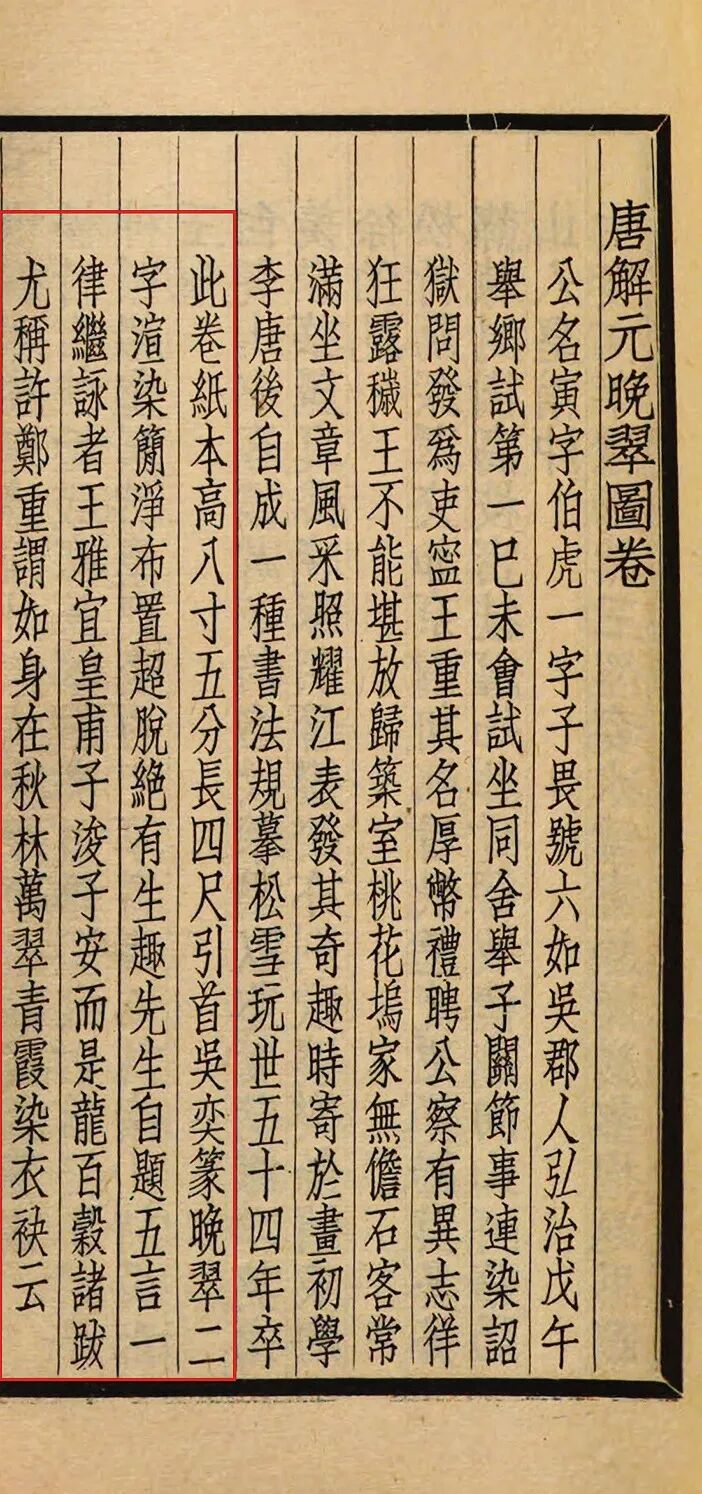 唐解元晚翠圖卷
公名寅字伯虎一字子畏號六如吳郡人弘治戊午
舉鄉試第一巳未會試坐同舍舉子關節事連染詔
獄問發爲吏寍王重其名厚幣禮聘公察有異志徉
狂露穢王不能堪放歸築室桃花塢家無儋石客常
滿坐文章風采照耀江表發其奇趣時寄於畫初學
李唐後自成一種書法規摹松雪玩世五十四年卒
此卷紙本高八寸五分長四尺引首吳奕篆晚翠二
字渲染簡淨布置超脫絕有生趣先生自題五言一
律繼詠者王雅宜皇甫子浚子安而是龍百穀諸跋
尤稱許鄭重謂如身在秋林萬翠青霞染衣袂云